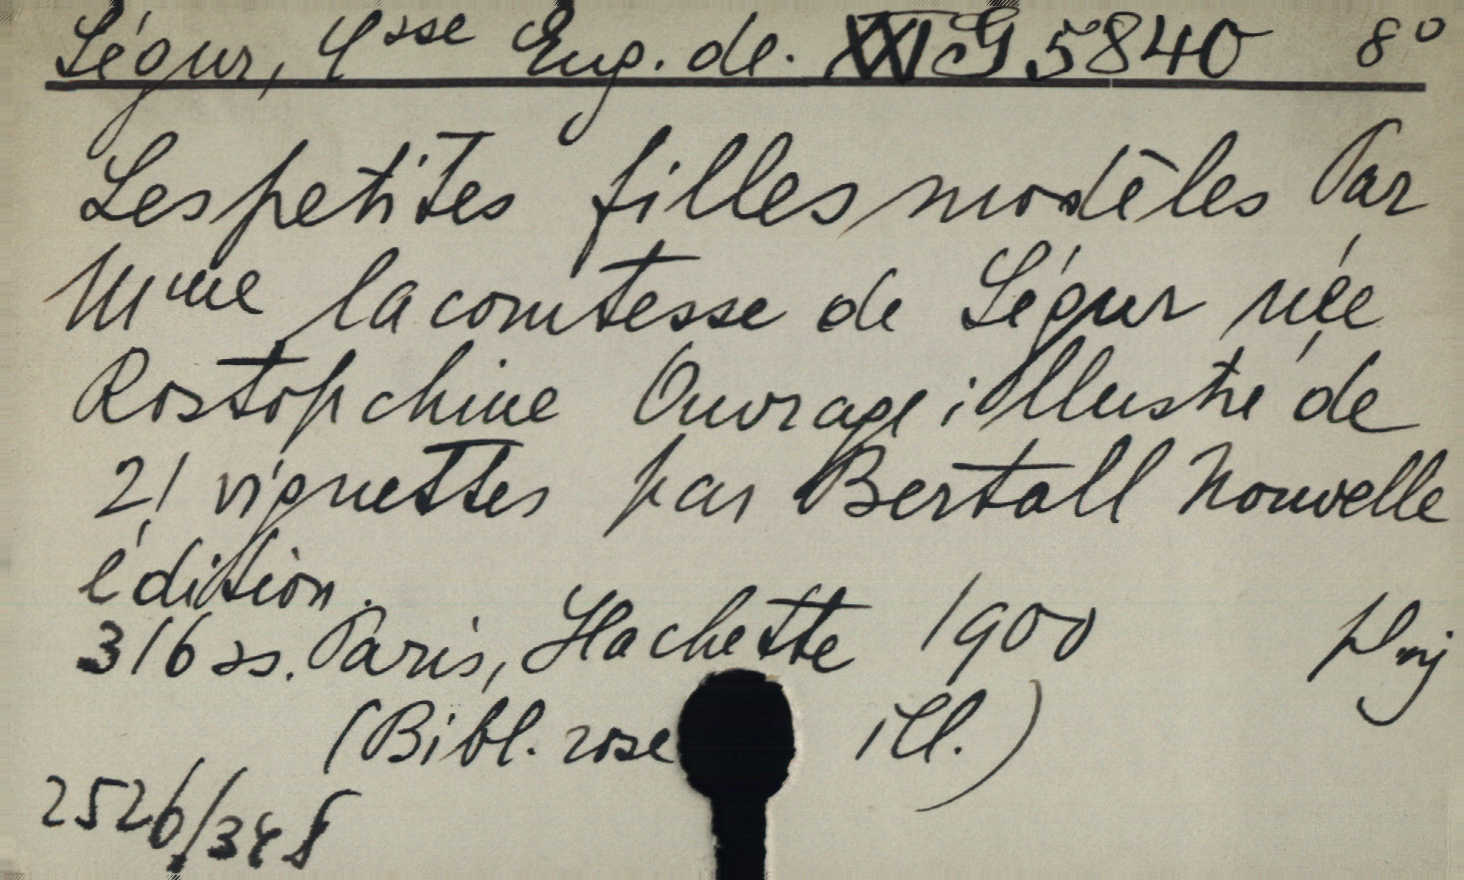 Ségur, Csse Eug. de. XXI G 5840 8°
Les petites filles modèles Par
Mme la comtesse de Ségur née
Rostopchine Ouvrage illustré de
21 vignettes par Bertall Nouvelle
édition.
316 ss. Paris, Hachette 1900
(Bibl. rose ill.)
2526/34